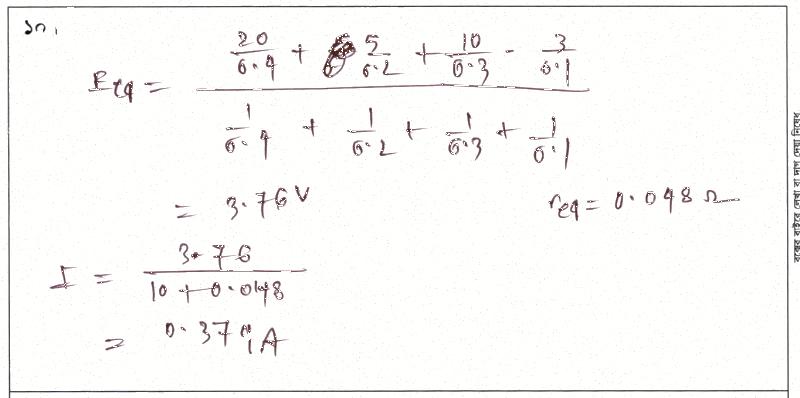 ১০।
E_eq = (20/0.4 + 5/0.2 + 10/0.3 - 3/0.1) / (1/0.4 + 1/0.2 + 1/0.3 + 1/0.1)
= 3.76 V r_eq = 0.048 Ω
I = 3.76 / (10 + 0.048)
= 0.374 A
বাক্সের বাইরে লেখা বা দাগ দেয়া নিষেধ